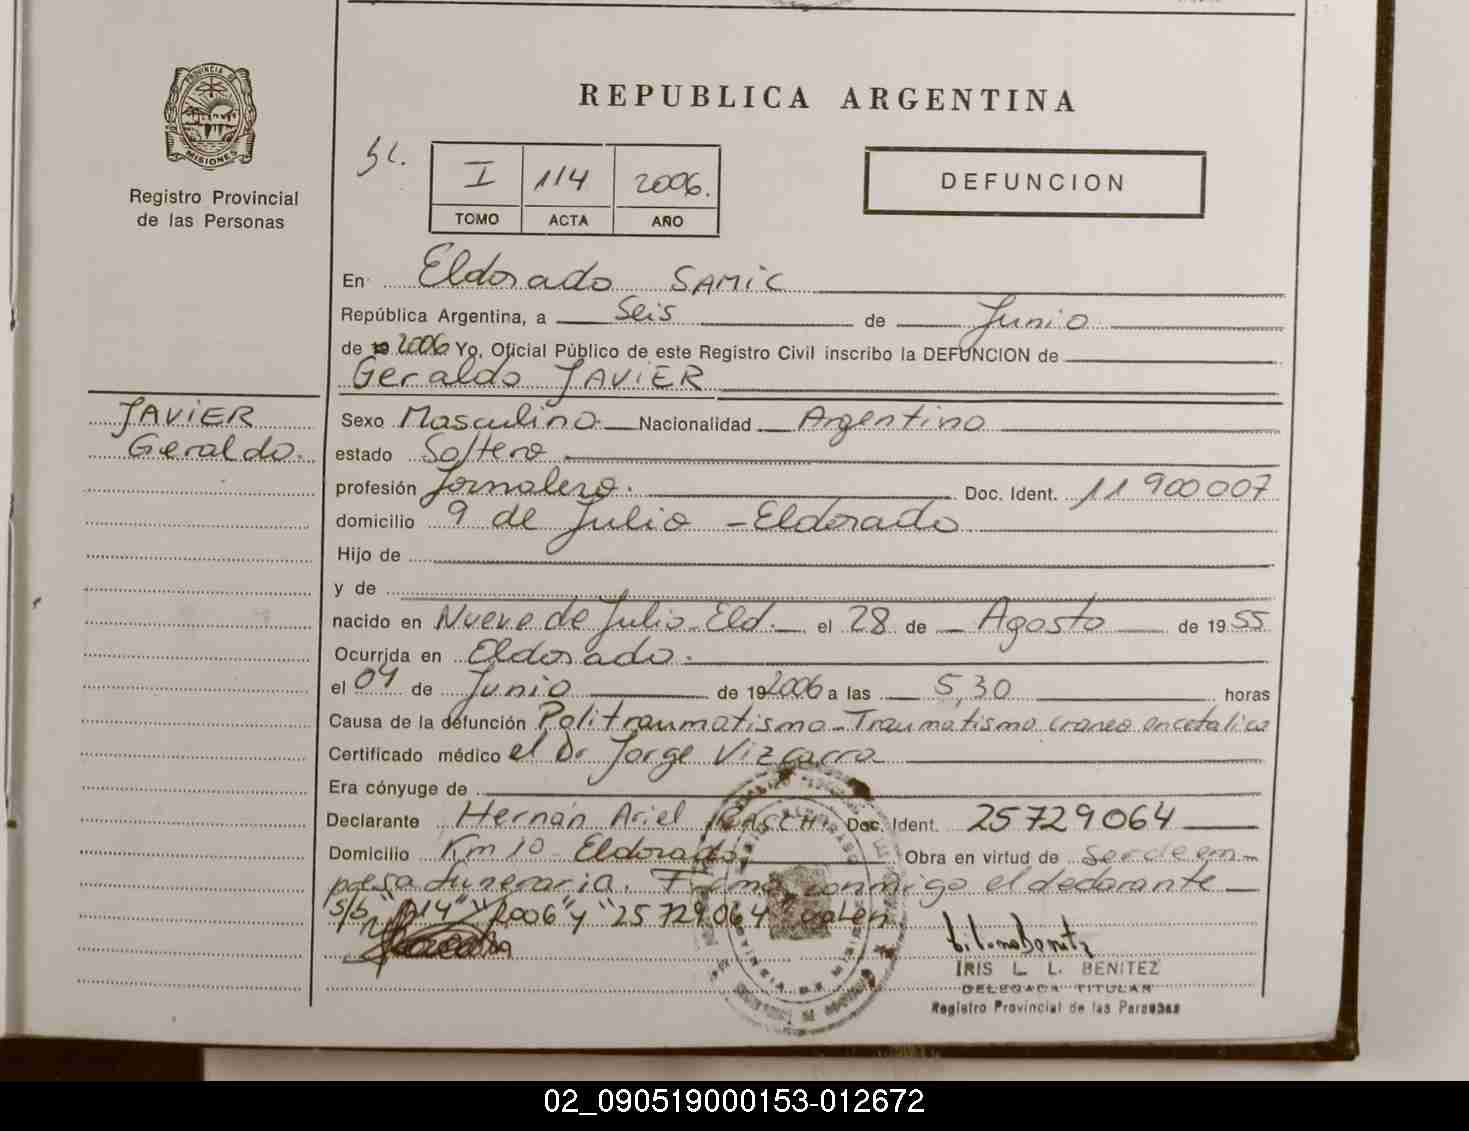 REPUBLICA ARGENTINA
PROVINCIA DE
MISIONES
Registro Provincial
de las Personas
I 114 2006.
TOMO ACTA AÑO
DEFUNCION
En Eldorado SAMIC
República Argentina, a Seis de Junio
de 19 2006 Yo, Oficial Público de este Registro Civil inscribo la DEFUNCION de
Geraldo JAVIER
JAVIER
Geraldo.
Sexo Masculino Nacionalidad Argentino
estado Soltero
profesión Jornalero. Doc. Ident. 11 900 007
domicilio 9 de Julio - Eldorado
Hijo de
y de
nacido en Nueve de Julio Eld. el 28 de Agosto de 1955
Ocurrida en Eldorado.
el 04 de Junio de 19 2006 a las 5,30 horas
Causa de la defunción Politraumatismo - Traumatismo craneo encefalico
Certificado médico el Dr Jorge Vizcarra
Era cónyuge de
Declarante Hernán Ariel Doc. Ident. 25729064
Domicilio Km 10 Eldorado, Obra en virtud de Ser de em-
presa funeraria. Firma conmigo el declarante
s/b "114" "2006" y "25729064" valen
IRIS L. L. BENITEZ
DELEGADA TITULAR
Registro Provincial de las Personas
02_090519000153-012672